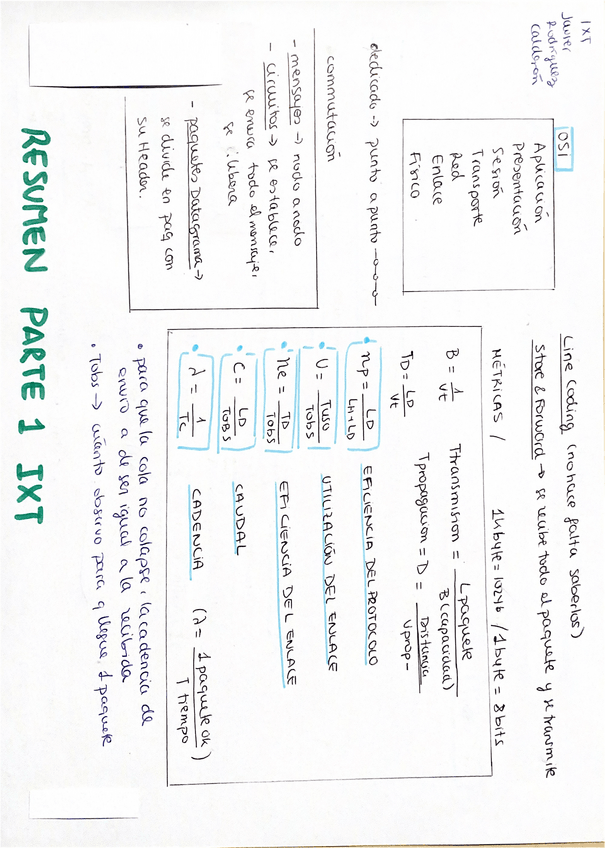 IXT
Javier
Rodríguez
Calderón
OSI
Aplicación
Presentación
Sesión
Transporte
Red
Enlace
Físico
dedicado → punto a punto -o-o-o-
conmutación
- mensajes → nodo a nodo
- circuitos → se establece,
se envia todo el mensaje,
se libera
- paquetes Datagrama →
se divide en paq con
su Header.
RESUMEN PARTE 1 IXT
Line Coding (no hace falta saberlos)
Store & Forward → se recibe todo el paquete y se transmite
MÉTRICAS / 1kbyte = 1024b / 1byte = 8 bits
B = 1/Vt Ttransmision = Lpaquete/B(capacidad)
TD = LD/Vt Tpropagacion = D = Distancia/Vprop-
np = LD/LH+LD EFICIENCIA DEL PROTOCOLO
U = Tuso/Tobs UTILIZACIÓN DEL ENLACE
ne = TD/Tobs EFICIENCIA DEL ENLACE
C = LD/TOBS CAUDAL
λ = 1/Tc CADENCIA (λ = 1 paquete ok/T tiempo)
• para que la cola no colapse, la cadencia de
envío a de ser igual a la recibida
• Tobs → cuento observo para q llegue 1 paquete